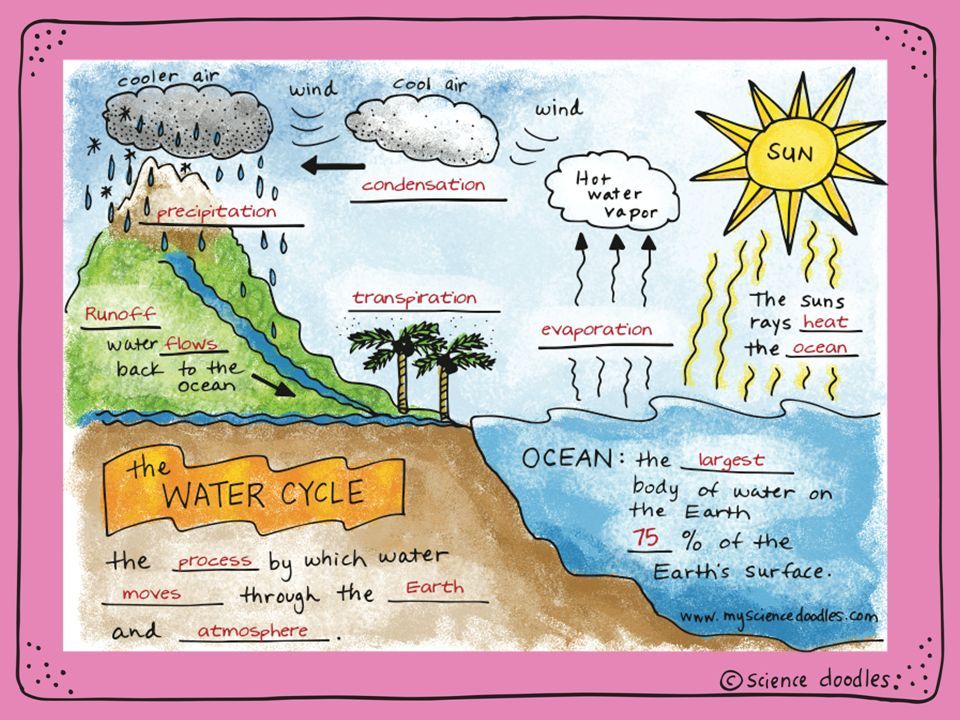 cooler air
wind
cool air
wind
SUN
condensation
Hot
water
vapor
precipitation
transpiration
evaporation
The suns
rays heat
the ocean
Runoff
water flows
back to the
ocean
the
WATER CYCLE
the process by which water
moves through the Earth
and atmosphere.
OCEAN: the largest
body of water on
the Earth
75 % of the
Earth's surface.
www.mysciencedoodles.com
© science doodles